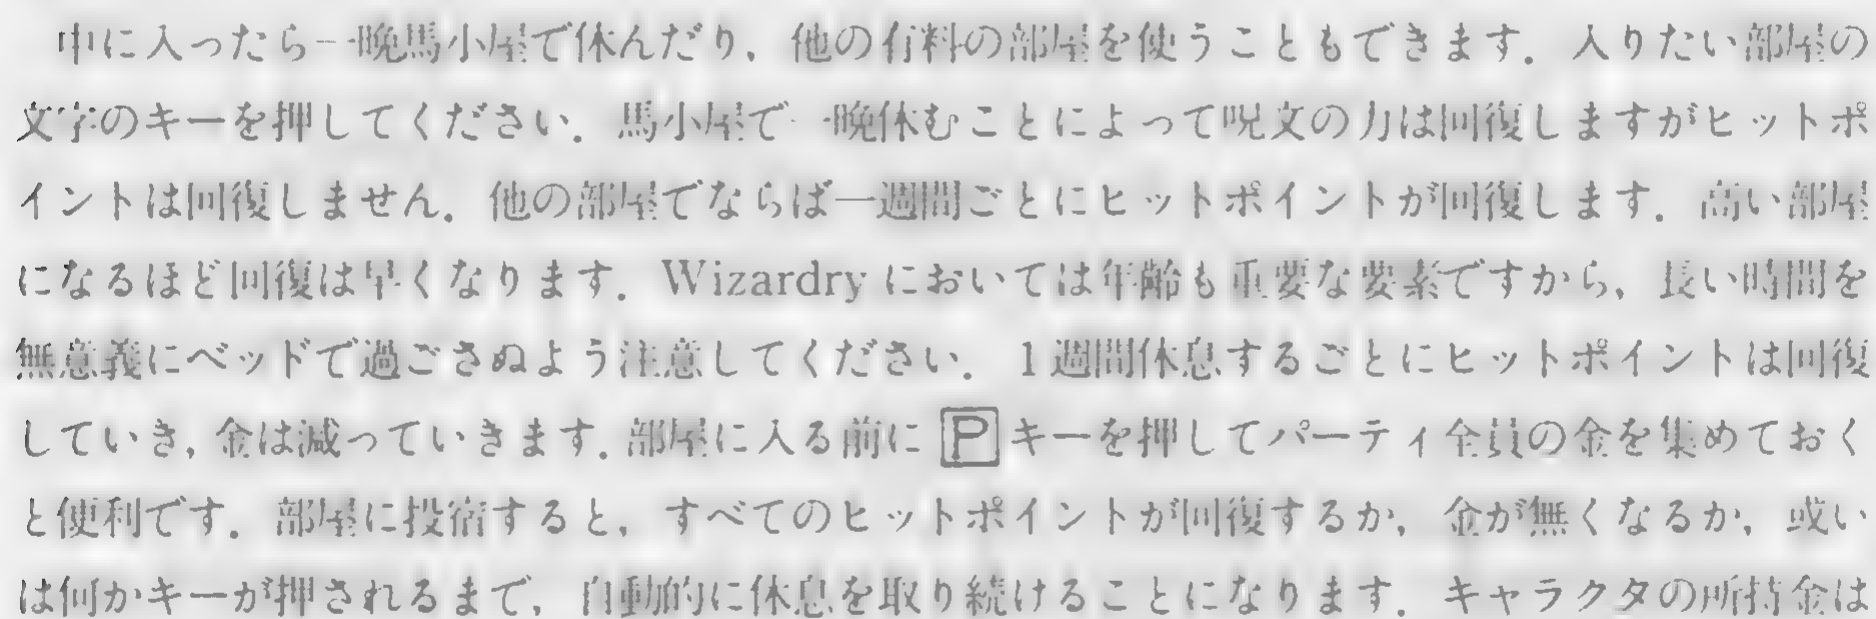 中に入ったら一晩馬小屋で休んだり，他の有料の部屋を使うこともできます．入りたい部屋の
文字のキーを押してください．馬小屋で一晩休むことによって呪文の力は回復しますがヒットポ
イントは回復しません．他の部屋でならば一週間ごとにヒットポイントが回復します．高い部屋
になるほど回復は早くなります．Wizardry においては年齢も重要な要素ですから，長い時間を
無意義にベッドで過ごさぬよう注意してください．1週間休息するごとにヒットポイントは回復
していき，金は減っていきます．部屋に入る前に P キーを押してパーティ全員の金を集めておく
と便利です．部屋に投宿すると，すべてのヒットポイントが回復するか，金が無くなるか，或い
は何かキーが押されるまで，自動的に休息を取り続けることになります．キャラクタの所持金は